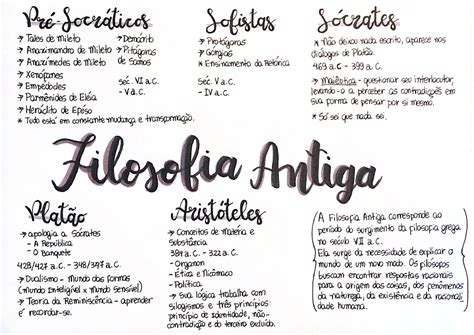 Pré-Socráticos
→ Tales de Mileto
→ Anaximandro de Mileto
→ Anaxímedes de Mileto
→ Xenófanes
→ Empédocles
→ Parmênides de Eléia
→ Heráclito de Éfeso
* Tudo está em constante mudança e transformação.
→ Demócrito
→ Pitágoras
de Samos
Séc. VI a.C.
- V a.C.
Sofistas
→ Protágoras
→ Górgias
* Ensinamento da Retórica
Séc. V a.C.
- IV a.C.
Sócrates
* Não deixou nada escrito, aparece nos
diálogos de Platão.
469 a.C - 399 a.C.
→ Maiêutica - questionar seu interlocutor,
levando-o a perceber as contradições em
sua forma de pensar por si mesmo.
* Só sei que nada sei.
Filosofia Antiga
Platão
→ apologia a Sócrates
- A República
- O Banquete
428/427 a.C. - 348/347 a.C.
→ Dualismo - Mundo das formas
(mundo Inteligível x Mundo Sensível)
→ Teoria da Reminiscência - aprender
é recordar-se.
Aristóteles
→ Conceitos de Matéria e
Substância
384 a.C. - 322 a.C.
- Organon
- Ética a Nicômaco
- Política
→ Sua lógica trabalha com
silogismos e três princípios:
princípio de identidade, não-
contradição e do terceiro excluído.
A Filosofia Antiga corresponde ao
período do surgimento da filosofia grega
no século VII a.C.
Ela surge da necessidade de explicar o
mundo de um novo modo. Os filósofos
buscam encontrar respostas racionais
para a origem das coisas, dos fenômenos
da natureza, da existência e da racionali-
dade humana.